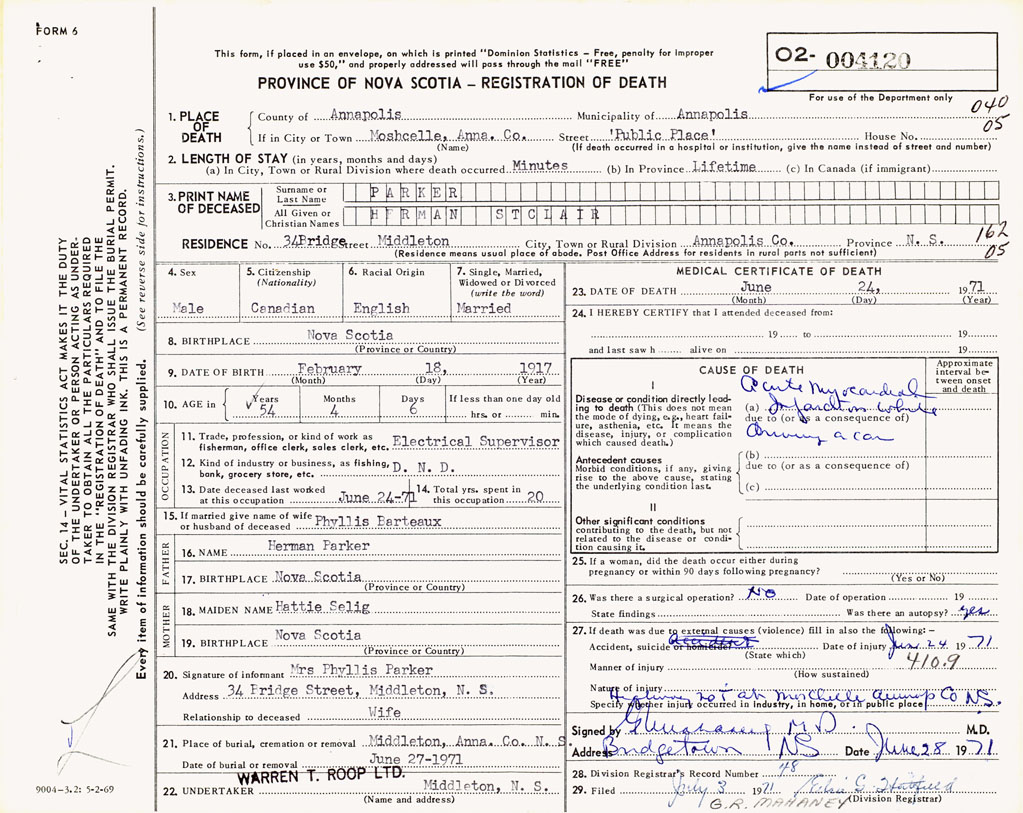 FORM 6
This form, if placed in an envelope, on which is printed "Dominion Statistics – Free, penalty for improper
use $50," and properly addressed will pass through the mail "FREE"
PROVINCE OF NOVA SCOTIA – REGISTRATION OF DEATH
02- 004120
For use of the Department only
040
05
1. PLACE OF DEATH
County of Annapolis Municipality of Annapolis
If in City or Town Moshcelle, Anna. Co. Street 'Public Place' House No.
(Name) (If death occurred in a hospital or institution, give the name instead of street and number)
2. LENGTH OF STAY (in years, months and days)
(a) In City, Town or Rural Division where death occurred Minutes (b) In Province Lifetime (c) In Canada (if immigrant)
3. PRINT NAME OF DECEASED
Surname or Last Name PARKER
All Given or Christian Names HERMAN STCLAIR
162
05
RESIDENCE No. 34 Bridge Street Middleton City, Town or Rural Division Annapolis Co. Province N. S.
(Residence means usual place of abode. Post Office Address for residents in rural parts not sufficient)
4. Sex
Male
5. Citizenship
(Nationality)
Canadian
6. Racial Origin
English
7. Single, Married,
Widowed or Divorced
(write the word)
Married
8. BIRTHPLACE Nova Scotia
(Province or Country)
9. DATE OF BIRTH February 18, 1917
(Month) (Day) (Year)
10. AGE in Years 54 Months 4 Days 6 If less than one day old
hrs. or min.
OCCUPATION
11. Trade, profession, or kind of work as
fisherman, office clerk, sales clerk, etc. Electrical Supervisor
12. Kind of industry or business, as fishing,
bank, grocery store, etc. D. N. D.
13. Date deceased last worked
at this occupation June 24-71
14. Total yrs. spent in
this occupation 20
15. If married give name of wife
or husband of deceased Phyllis Barteaux
FATHER
16. NAME Herman Parker
17. BIRTHPLACE Nova Scotia
(Province or Country)
MOTHER
18. MAIDEN NAME Hattie Selig
19. BIRTHPLACE Nova Scotia
(Province or Country)
20. Signature of informant Mrs Phyllis Parker
Address 34 Bridge Street, Middleton, N. S.
Relationship to deceased Wife
21. Place of burial, cremation or removal Middleton, Anna. Co. N. S.
Date of burial or removal June 27-1971
WARREN T. ROOP LTD.
22. UNDERTAKER Middleton, N. S.
(Name and address)
MEDICAL CERTIFICATE OF DEATH
23. DATE OF DEATH June 24, 1971
(Month) (Day) (Year)
24. I HEREBY CERTIFY that I attended deceased from:
19 to 19
and last saw h alive on 19
CAUSE OF DEATH
Approximate
interval be-
tween onset
and death
I
Disease or condition directly lead-
ing to death (This does not mean
the mode of dying, e.g., heart fail-
ure, asthenia, etc. It means the
disease, injury, or complication
which caused death.)
Acute Myocardial
(a) Infarction while
due to (or as a consequence of)
driving a car
Antecedent causes
Morbid conditions, if any, giving
rise to the above cause, stating
the underlying condition last.
(b)
due to (or as a consequence of)
(c)
II
Other significant conditions
contributing to the death, but not
related to the disease or condi-
tion causing it.
25. If a woman, did the death occur either during
pregnancy or within 90 days following pregnancy?
(Yes or No)
26. Was there a surgical operation? No Date of operation 19
State findings Was there an autopsy? yes
27. If death was due to external causes (violence) fill in also the following: –
Accident, suicide or homicide Accident Date of injury June 24 1971
(State which)
410.9
Manner of injury
(How sustained)
Nature of injury
Highway no 1 at Moschelle Annap Co NS.
Specify whether injury occurred in industry, in home, or in public place
Signed by M.D. M.D.
Address Bridgetown NS Date June 28 1971
28. Division Registrar's Record Number 48
29. Filed July 3 1971
G.R. MAHANEY (Division Registrar)
SEC. 14 – VITAL STATISTICS ACT MAKES IT THE DUTY
OF THE UNDERTAKER OR PERSON ACTING AS UNDER-
TAKER TO OBTAIN ALL THE PARTICULARS REQUIRED
IN THE "REGISTRATION OF DEATH" AND TO FILE THE
SAME WITH THE DIVISION REGISTRAR WHO SHALL ISSUE THE BURIAL PERMIT.
WRITE PLAINLY WITH UNFADING INK. THIS IS A PERMANENT RECORD.
Every item of information should be carefully supplied. (See reverse side for instructions.)
9004-3.2: 5-2-69